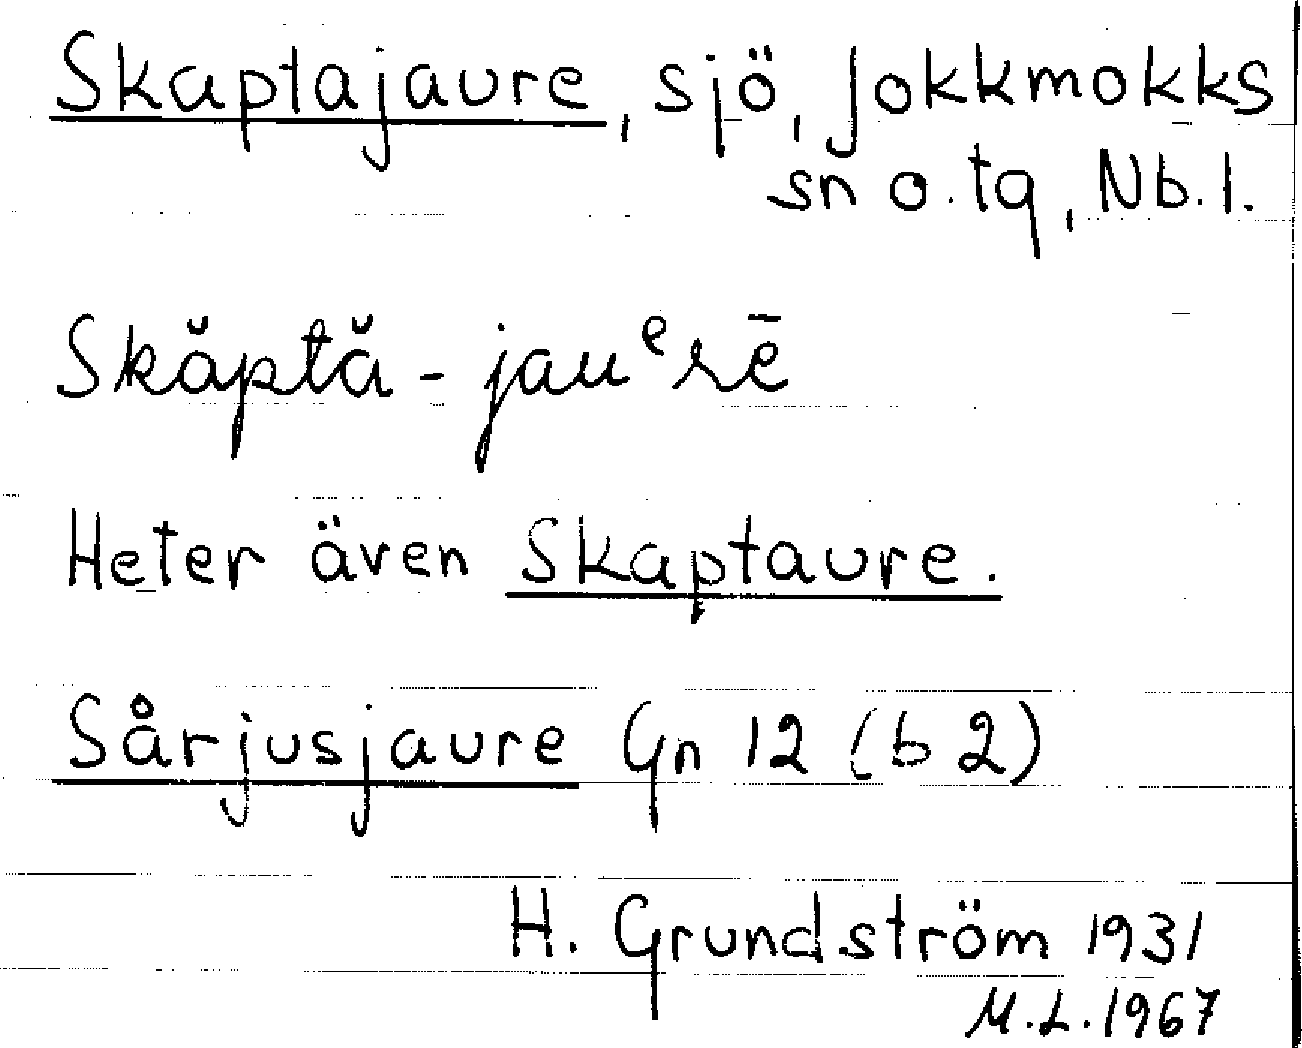 Skaptajaure, sjö, Jokkmokks
sn o. tg, Nb. l.
Skăptă-jauᵉrē
Heter även Skaptaure.
Sårjusjaure Gn 12 (b 2)
H. Grundström 1931
M.L. 1967